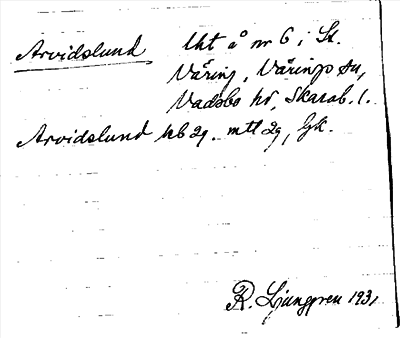 Arvidslund Uht å nr 6 i St.
Väring, Värings sn,
Vadsbo hd, Skarab. l.
Arvidslund hb 2g. mtl 2g, Gk.
R. Ljunggren 1931